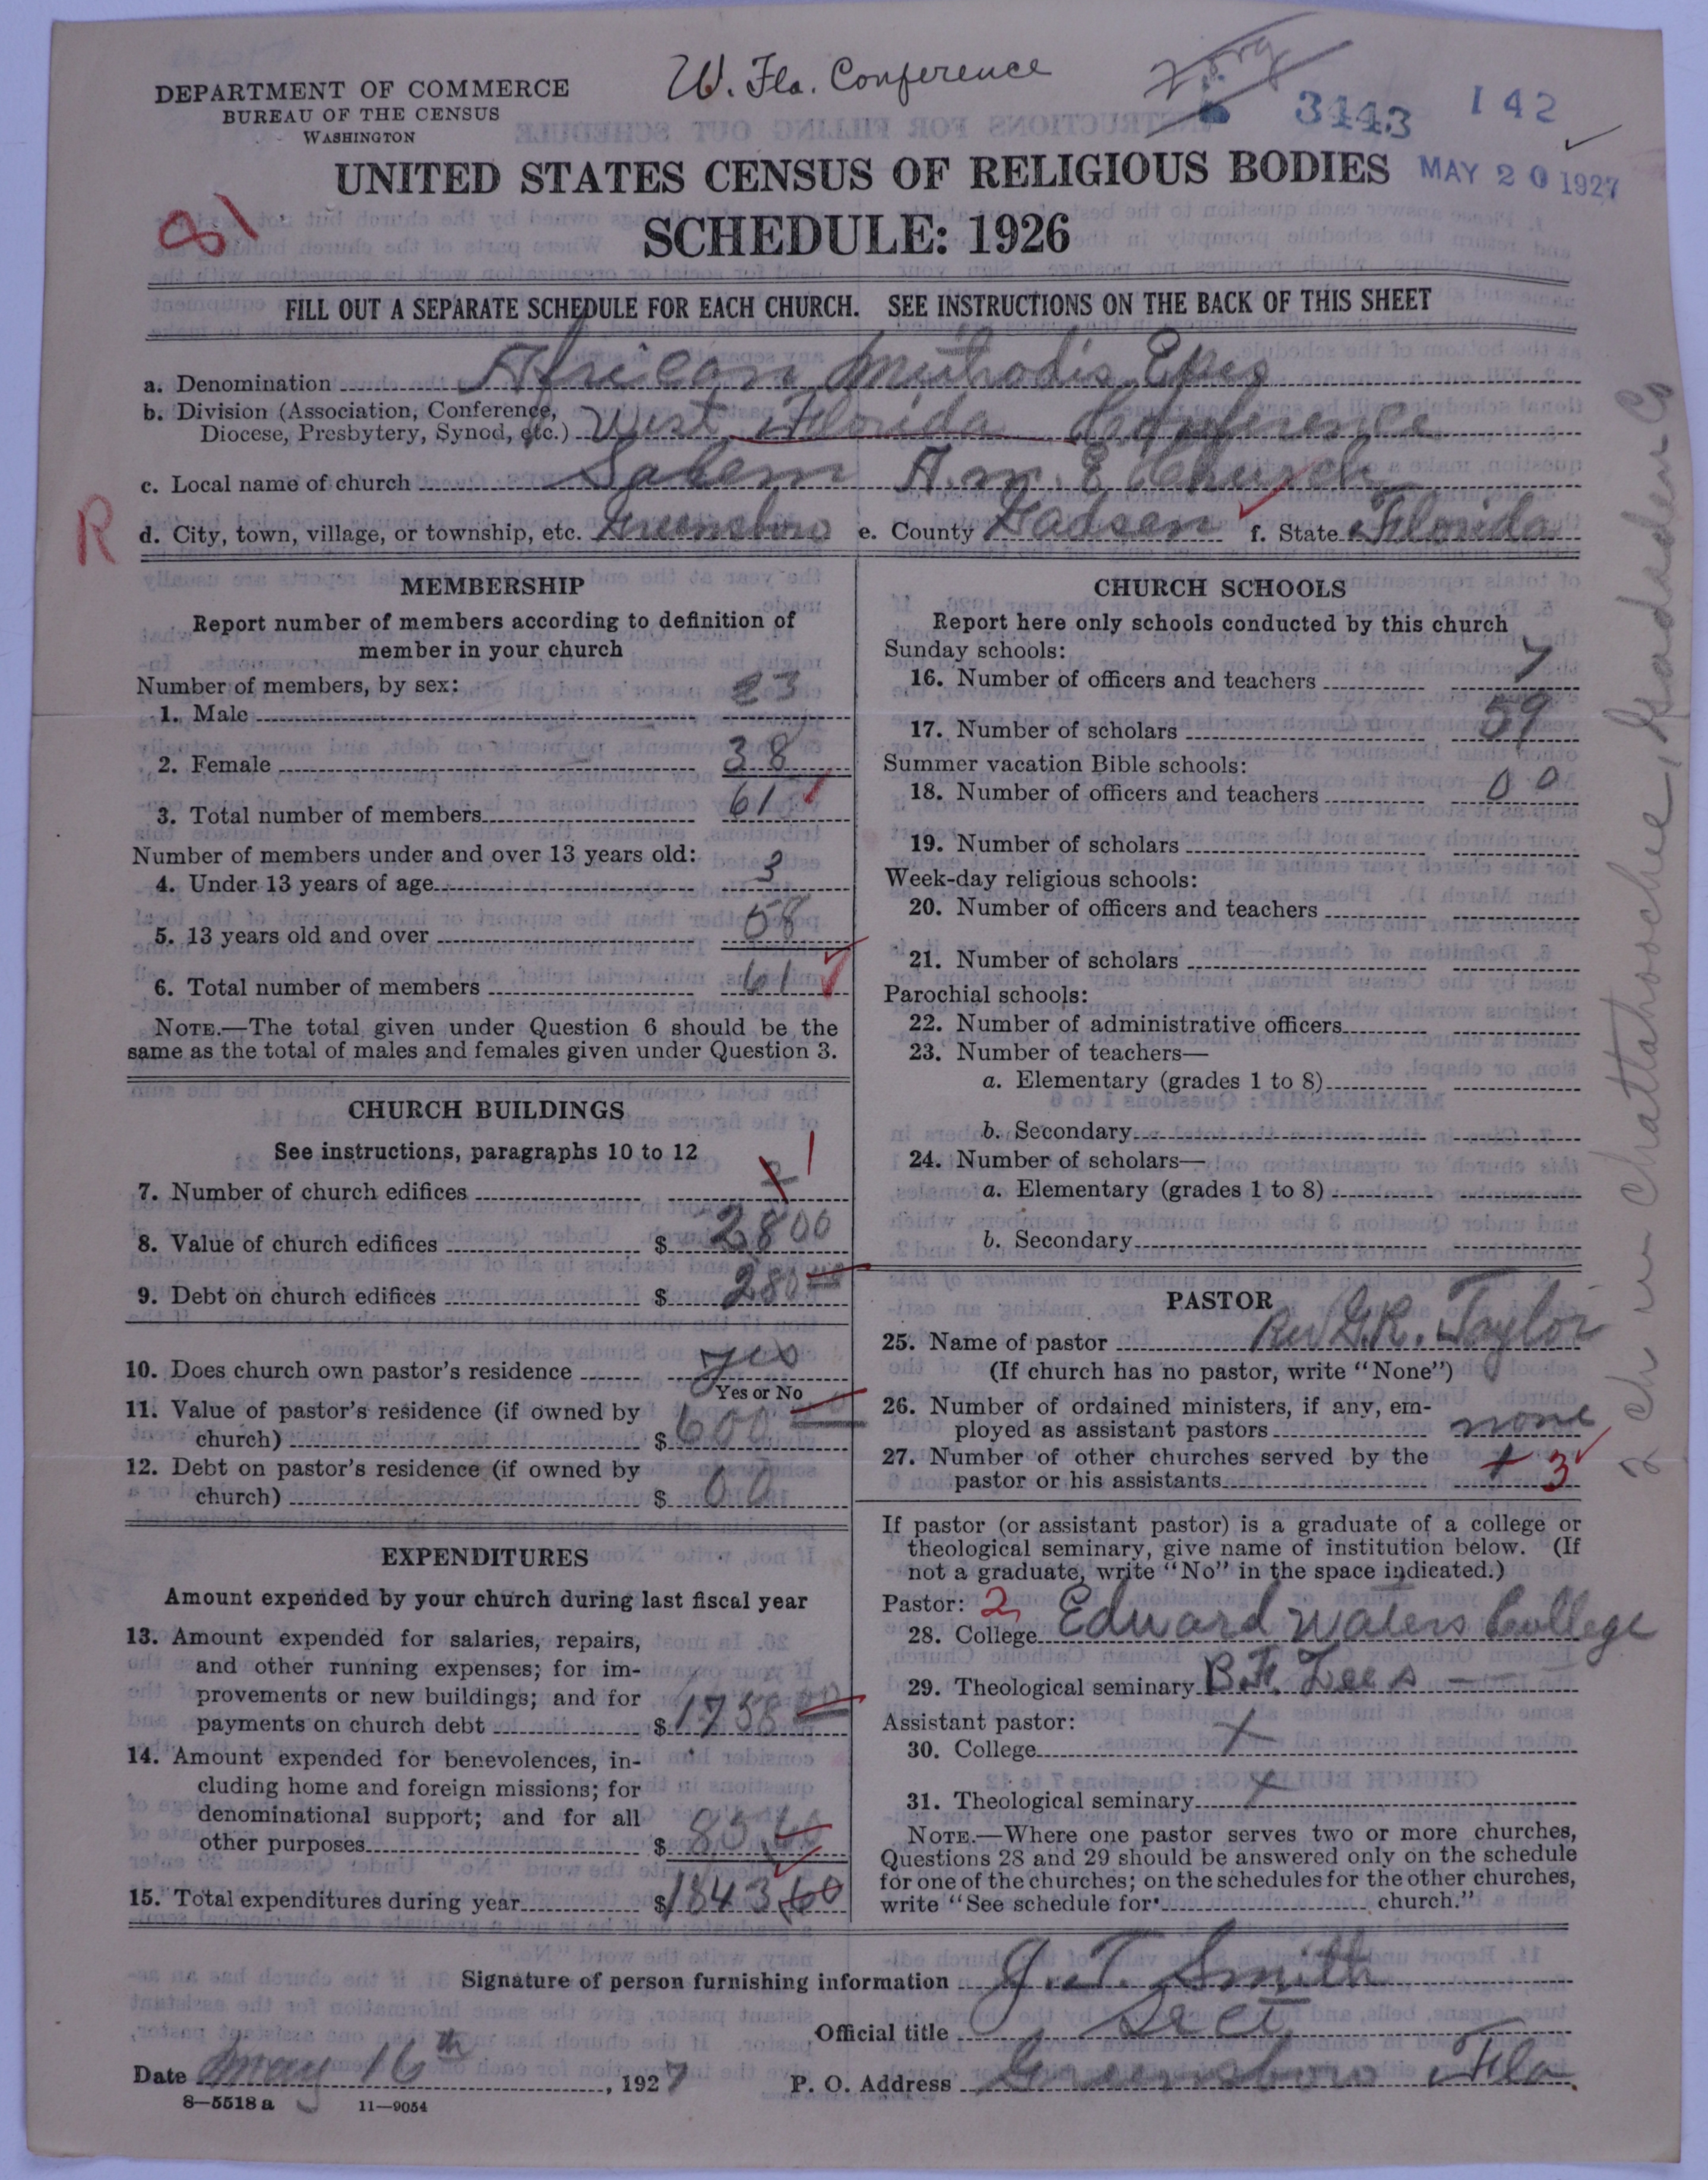 W. Fla. Conference
3443 142
DEPARTMENT OF COMMERCE
BUREAU OF THE CENSUS
WASHINGTON
UNITED STATES CENSUS OF RELIGIOUS BODIES
MAY 20 1927
SCHEDULE: 1926
81
FILL OUT A SEPARATE SCHEDULE FOR EACH CHURCH. SEE INSTRUCTIONS ON THE BACK OF THIS SHEET
a. Denomination African Methodis Epis
b. Division (Association, Conference,
Diocese, Presbytery, Synod, etc.) West Florida Conference
c. Local name of church Salem A.M.E Church
R
d. City, town, village, or township, etc. Greensboro e. County Gadsen f. State Florida
MEMBERSHIP
Report number of members according to definition of
member in your church
Number of members, by sex:
1. Male 23
2. Female 38
3. Total number of members 61
Number of members under and over 13 years old:
4. Under 13 years of age 3
5. 13 years old and over 58
6. Total number of members 61
NOTE.—The total given under Question 6 should be the
same as the total of males and females given under Question 3.
CHURCH BUILDINGS
See instructions, paragraphs 10 to 12
7. Number of church edifices 1
8. Value of church edifices $ 2800
9. Debt on church edifices $ 280
10. Does church own pastor's residence yes
Yes or No
11. Value of pastor's residence (if owned by
church) $ 600
12. Debt on pastor's residence (if owned by
church) $ 00
EXPENDITURES
Amount expended by your church during last fiscal year
13. Amount expended for salaries, repairs,
and other running expenses; for im-
provements or new buildings; and for
payments on church debt $ 1758 00
14. Amount expended for benevolences, in-
cluding home and foreign missions; for
denominational support; and for all
other purposes $ 85.60
15. Total expenditures during year $ 1843.60
CHURCH SCHOOLS
Report here only schools conducted by this church
Sunday schools:
16. Number of officers and teachers 7
17. Number of scholars 59
Summer vacation Bible schools:
18. Number of officers and teachers 00
19. Number of scholars
Week-day religious schools:
20. Number of officers and teachers
21. Number of scholars
Parochial schools:
22. Number of administrative officers
23. Number of teachers—
a. Elementary (grades 1 to 8)
b. Secondary
24. Number of scholars—
a. Elementary (grades 1 to 8)
b. Secondary
PASTOR
25. Name of pastor Rev G.R. Taylor
(If church has no pastor, write "None")
26. Number of ordained ministers, if any, em-
ployed as assistant pastors none
27. Number of other churches served by the
pastor or his assistants 3
If pastor (or assistant pastor) is a graduate of a college or
theological seminary, give name of institution below. (If
not a graduate, write "No" in the space indicated.)
Pastor: 2
28. College Edward Waters College
29. Theological seminary B.F. Lees
Assistant pastor:
30. College X
31. Theological seminary X
NOTE.—Where one pastor serves two or more churches,
Questions 28 and 29 should be answered only on the schedule
for one of the churches; on the schedules for the other churches,
write "See schedule for church."
Signature of person furnishing information J. T. Smith
Official title Sect
Date May 16th, 1927 P. O. Address Greensboro Fla.
8—5518 a 11—9054
2 ch in Chattahoochee, Gadsden Co